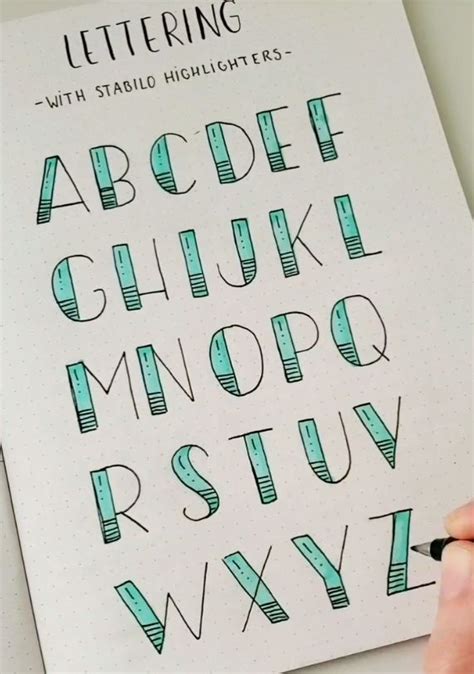 LETTERING
-WITH STABILO HIGHLIGHTERS-
ABCDEF
GHIJKL
MNOPQ
RSTUV
WXYZ